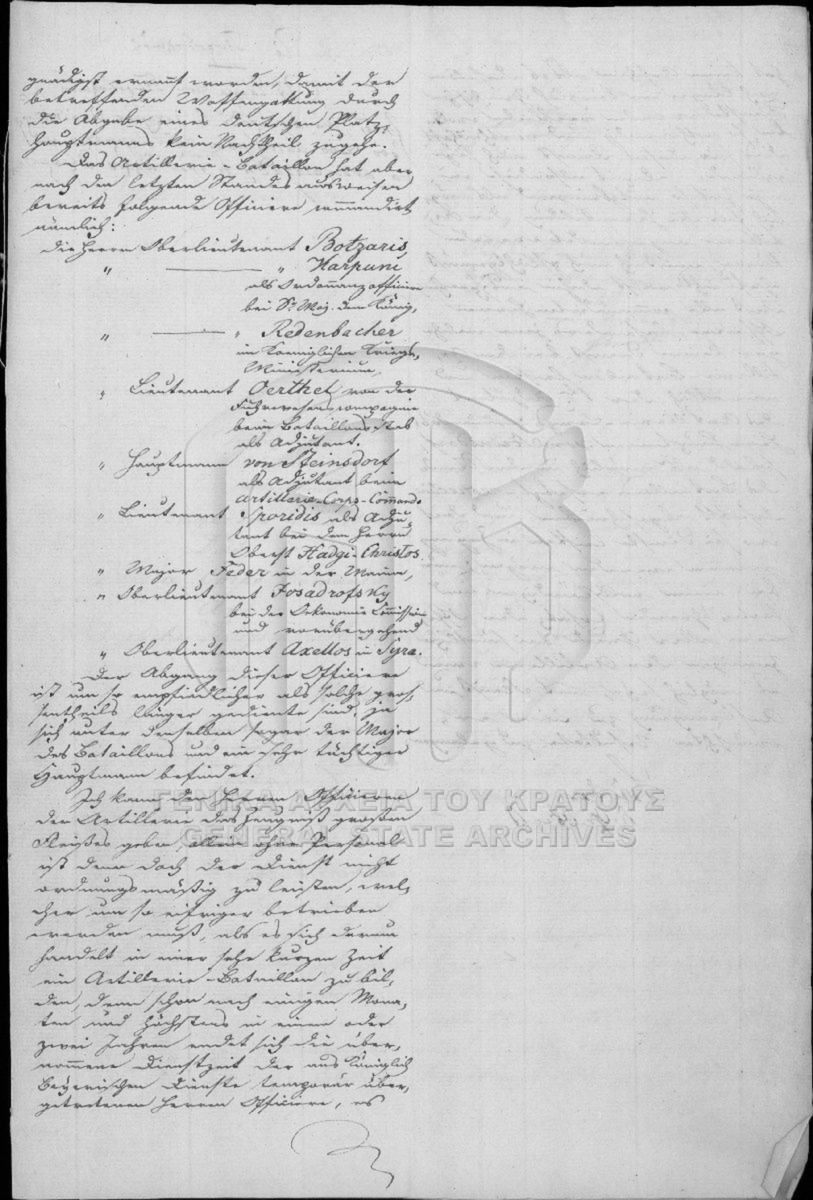 gnädigst ernannt worden, damit der
betreffenden Waffengattung durch
die Abgabe eines deutschen Platz-
hauptmanns kein Nachtheil zugehe.
Das Artillerie-Bataillon hat aber
nach den letzten Standes ausweisen
bereits folgende Officiere commandirt
nämlich:
die Herrn Oberlieutenant Botzaris,
" ——— " Karpuni
als Ordonnanzofficier
bei Sr Maj. dem König,
" ——— " Redenbacher
im Koeniglichen Kriegs-
Ministerium,
" Lieutenant Oerthel, von der
Fuhrwesens compagnie
beim Bataillons Stab
als Adjutant.
" Hauptmann von Steinsdorf
als Adjutant beim
Artillerie-Corps-Commando
" Lieutenant Sporidis als Adju-
tant bei dem Herrn
Oberst Hadgi-Christos
" Major Feder in der Maina,
" Oberlieutenant Josadrofsky
bei der Oekonomie Commission
und vorübergehend
" Oberlieutenant Axellos in Syra.
Der Abgang dieser Officiere
ist um so empfindlicher als solche gros-
sentheils länger gediente sind, ja
sich unter denselben sogar der Major
des Bataillons und ein sehr tüchtiger
Hauptmann befindet.
Ich kann den Herrn Officieren
der Artillerie das Zeugniß großen
Fleißes geben, allein ohne Personal
ist denn doch der Dienst nicht
ordnungsmäßig zu leisten, wel-
cher um so eifriger betrieben
werden muß, als es sich darum
handelt in einer sehr kurzen Zeit
ein Artillerie-Bataillon zu bil-
den, denn schon nach einigen Mona-
ten und höchstens in einem oder
zwei Jahren endet sich die über-
nommene Dienstzeit der aus Königlich
Bayerischen Dienste temporär über-
getretenen Herrn Officiere, es
ΓΕΝΙΚΑ ΑΡΧΕΙΑ ΤΟΥ ΚΡΑΤΟΥΣ
GENERAL STATE ARCHIVES